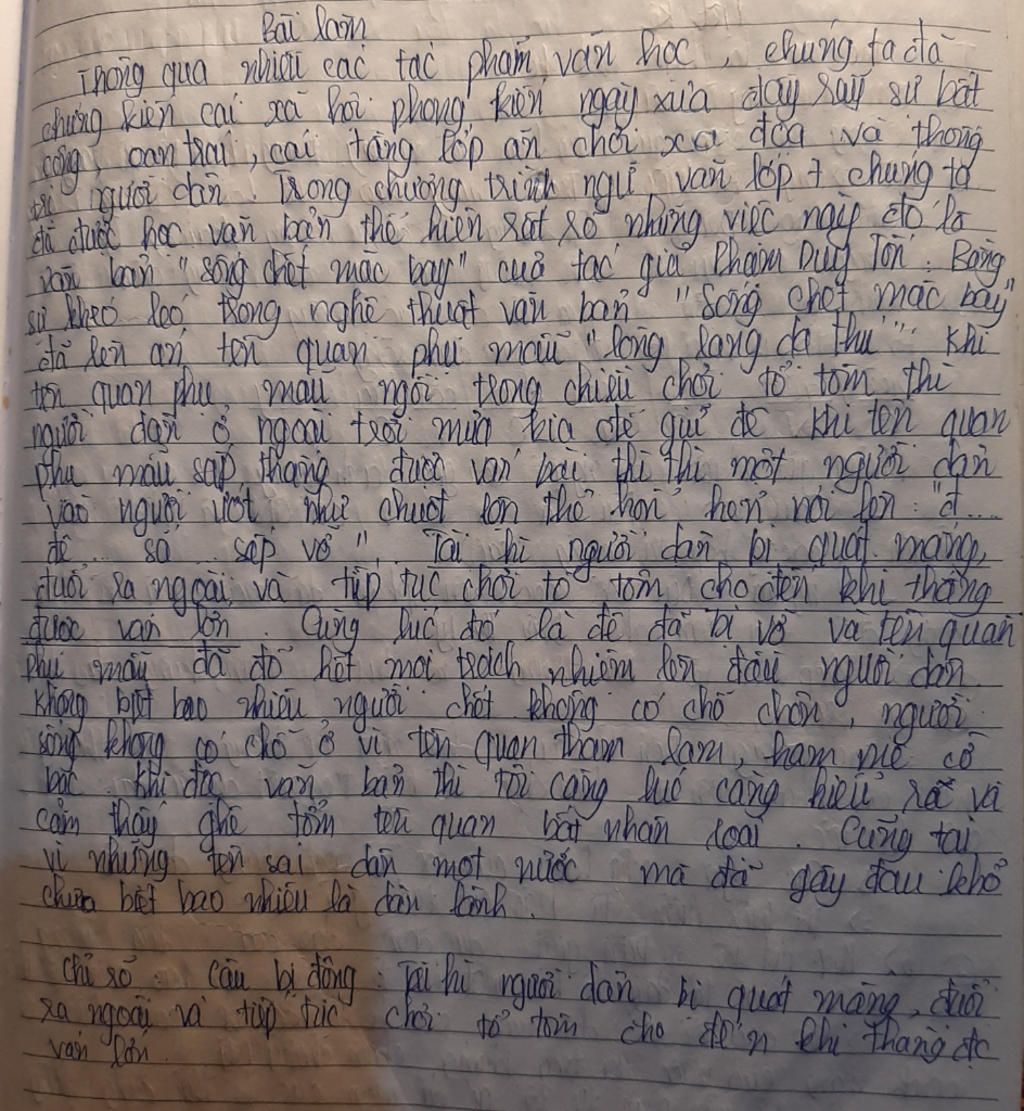 Bài làm
Thông qua nhiều các tác phẩm văn học, chúng ta đã
chứng kiến cái xã hội phong kiến ngày xưa đầy rẫy sự bất
công, oan trái, cái tầng lớp ăn chơi xa đọa và thống
trị người dân. Trong chương trình ngữ văn lớp 7 chúng ta
đã được học văn bản thể hiện rất rõ những việc này đó là
văn bản "sống chết mặc bay" của tác giả Phạm Duy Tốn. Bằng
sự khéo léo trong nghệ thuật văn bản "Sống chết mặc bay"
đã lên án tên quan phụ mẫu "lòng lang dạ thú". Khi
tên quan phụ mẫu ngồi trong chiếu chơi tổ tôm thì
người dân ở ngoài trời mưa kia để giữ đê. Khi tên quan
phụ mẫu sắp thắng được ván bài thì thì một người dân
vào người ướt như chuột lon thở hổn hển nói lên: "đ...
đê... sắ.. sắp vỡ". Tài hi người dân bị quát mắng,
đuổi ra ngoài và tiếp tục chơi tổ tôm cho đến khi thắng
được ván lớn. Cùng lúc đó là đê đã bị vỡ và tên quan
phụ mẫu đã đổ hết mọi trách nhiệm lên đầu người dân.
Không biết bao nhiêu người chết không có chỗ chôn, người
sống không có chỗ ở vì tên quan tham lam, ham mê cờ
bạc. Khi đọc văn bản thì tôi càng lúc càng hiểu rõ và
cảm thấy ghê tởm tên quan bất nhân loại. Cũng tại
vì những tên sai dân một nước mà đã gây đau khổ
chưa biết bao nhiêu là dân lành.
Chỉ rõ: Câu bị động: Tài hi người dân bị quát mắng, đuổi
ra ngoài và tiếp tục chơi tổ tôm cho đến khi thắng đc
ván lớn.